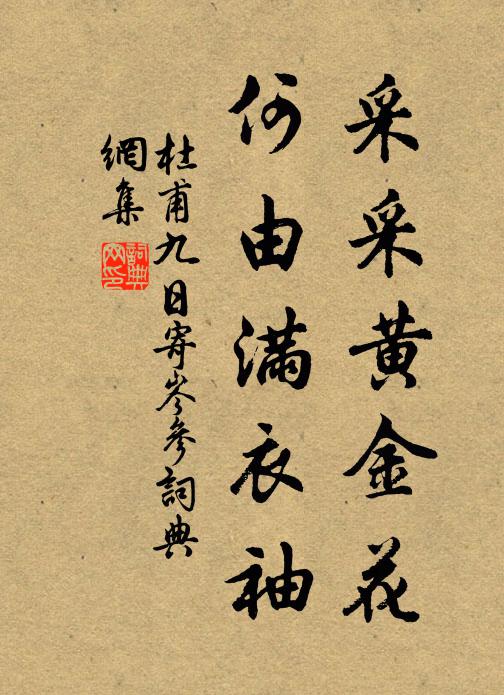 采采黄金花
何由满衣袖
杜甫九日寄岑參詞典
網集
詞典
网印